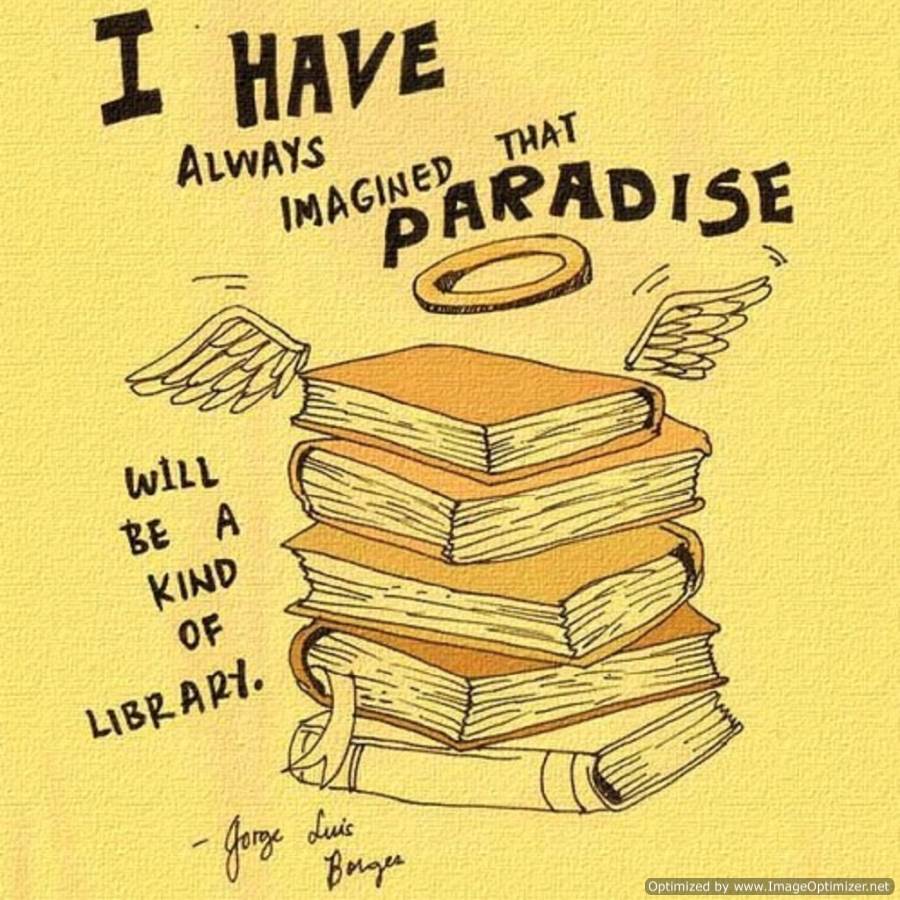 I HAVE
ALWAYS
IMAGINED THAT
PARADISE
WILL
BE A
KIND
OF
LIBRARY.
- Jorge Luis
Borges
Optimized by www.ImageOptimizer.net